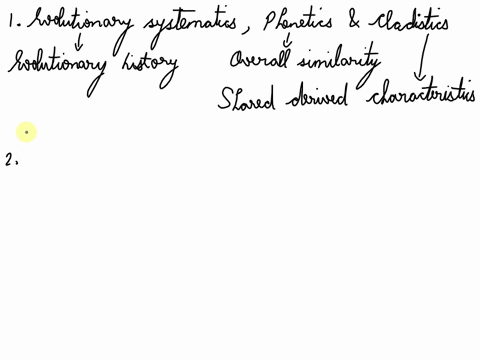 1. Evolutionary systematics, Phenetics & Cladistics
Evolutionary history Overall similarity
Shared derived characteristics
2.